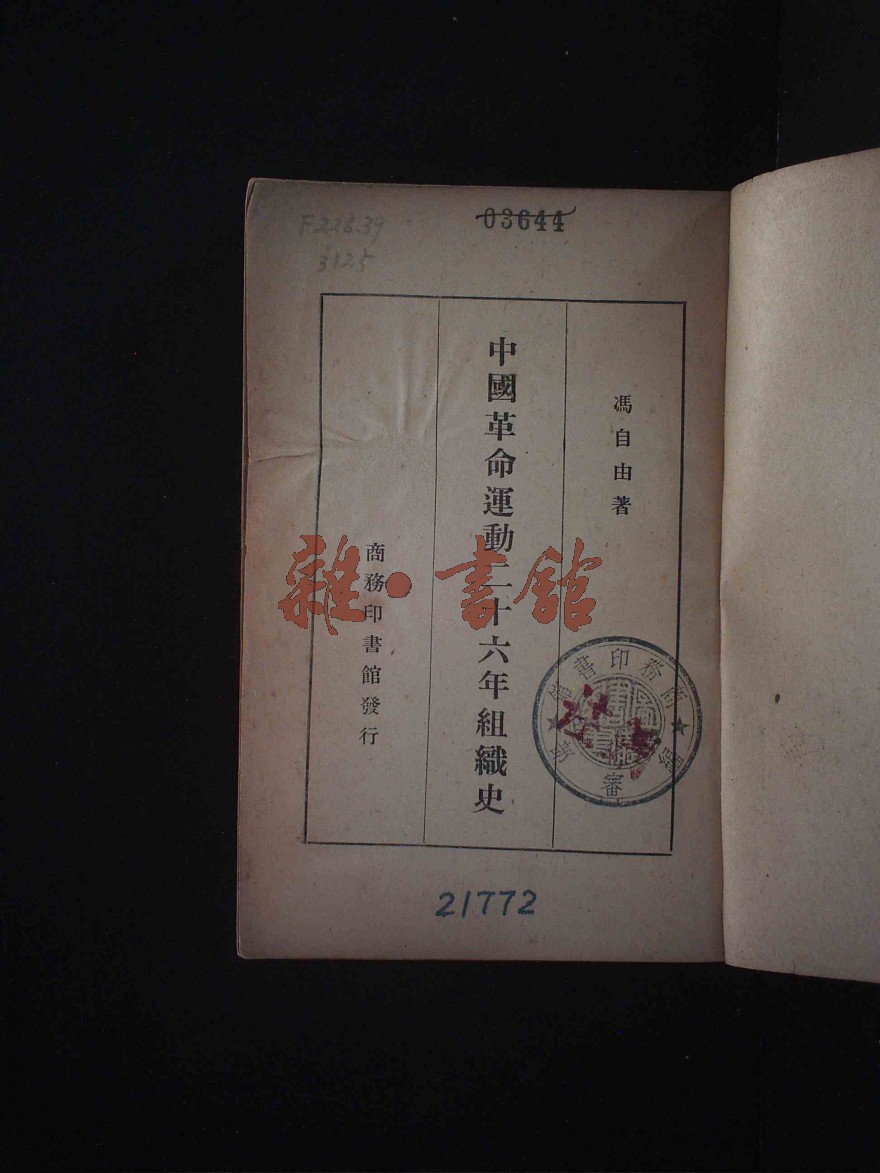 03644
F226.39
3125
馮自由著
中國革命運動二十六年組織史
商務印書館發行
雜·書館
商務印書館
審
21772